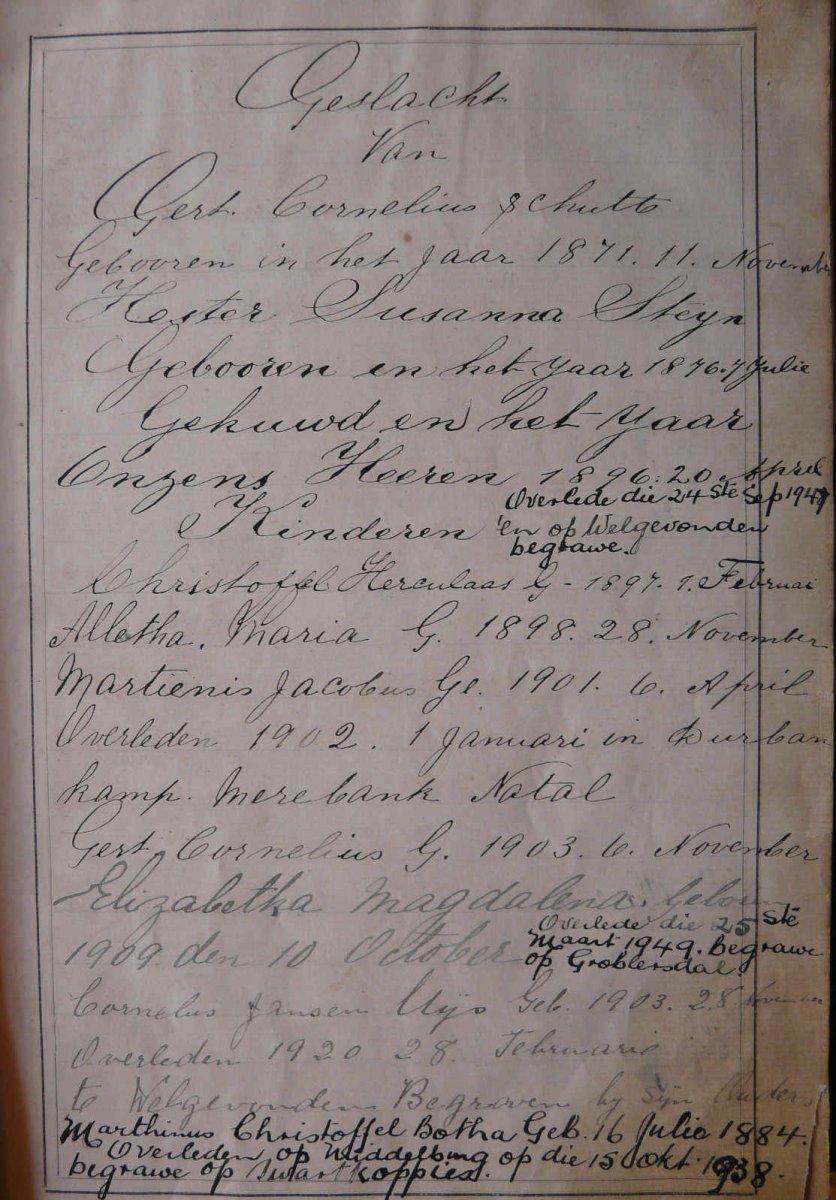 Geslacht
Van
Gert. Cornelius Schutte
Gebooren in het Jaar 1871. 11. November
Hester Susanna Steyn
Gebooren en het Yaar 1876. 7 Julie
Gekuwd en het Yaar
Onzens Heeren 1896: 20. April
Overlede die 24ste Sep 1947
Kinderen 'en op Welgevonden
begrawe.
Christoffel Herculaas G - 1897. 1. Februai
Alletha. Maria G. 1898. 28. November
Martienis Jacobus Ge. 1901. 6. April
Overleden 1902. 1 Januari in Durban
kamp. Merebank Natal
Gert Cornelius G. 1903. 6. November
Elizabetha Magdalena. Geboren
Overlede die 25ste
1909 den 10 October Maart 1949. Begrawe
op Groblersdal.
Cornelus Jansen Uys Geb. 1903. 28. November
Overleden 1920 28. Februarie
te Welgevonden Begraven by Syn Ouders
Marthinus Christoffel Botha Geb. 16 Julie 1884.
Overleden op Middelburg op die 15 Okt. 1938.
begrawe op Swartkoppies.